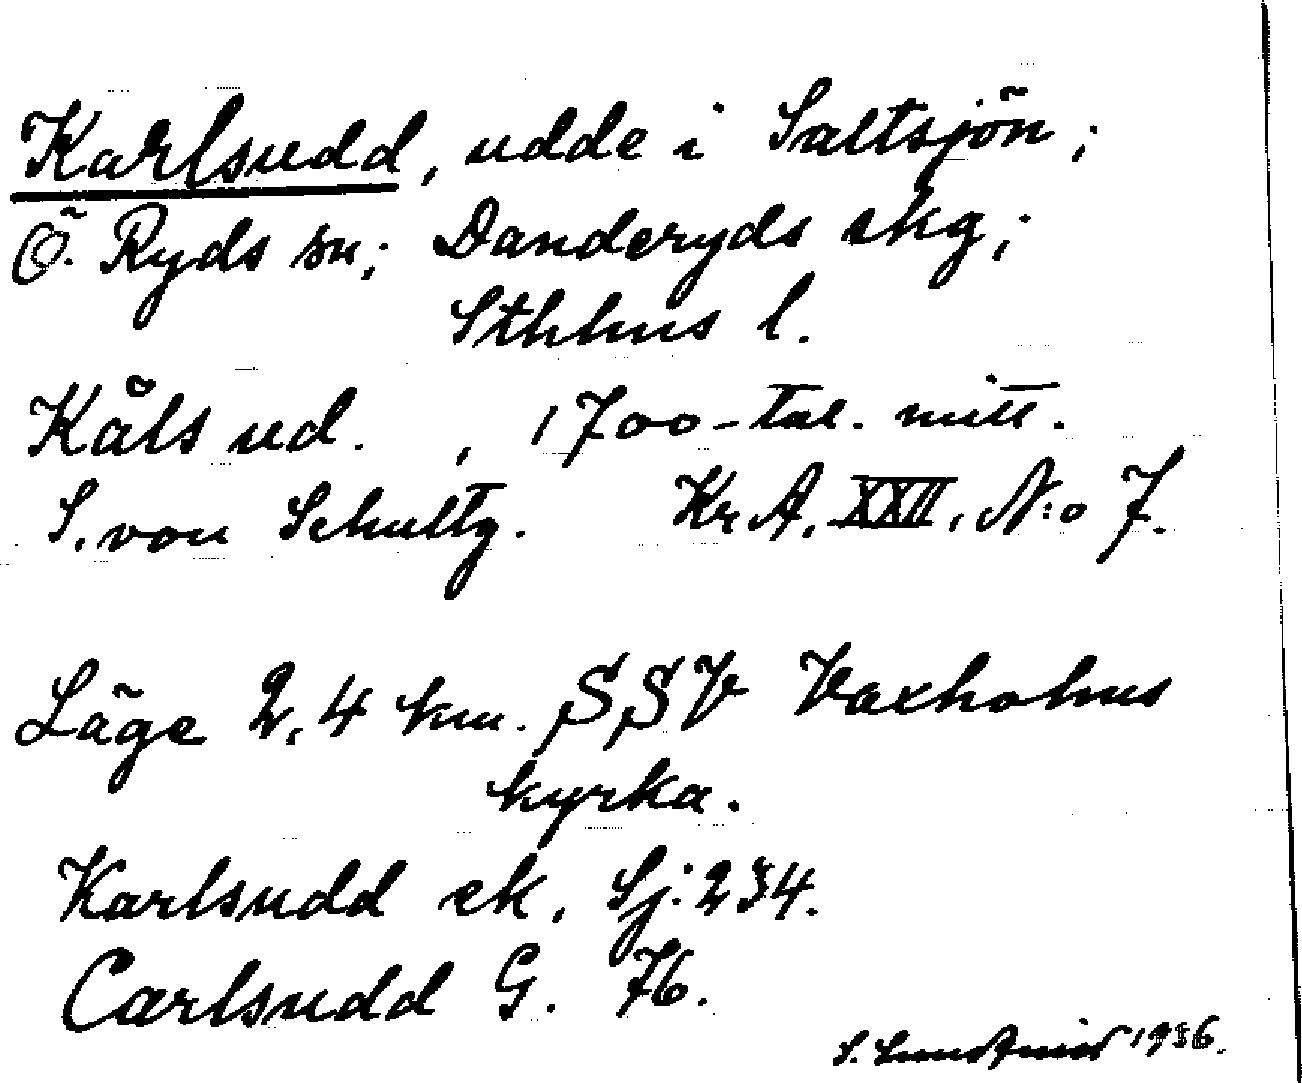 Karlsudd, udde i Saltsjön;
Ö. Ryds sn; Danderyds skg;
Sthlms l.
Kåls ud. , 1700-tal. mitt.
S. von Schultz. Kr A. XXII. N:o 7.
Läge 2,4 km. SSV Vaxholms
kyrka.
Karlsudd ek. Sj: 234.
Carlsudd G. 76.
S. 1936.